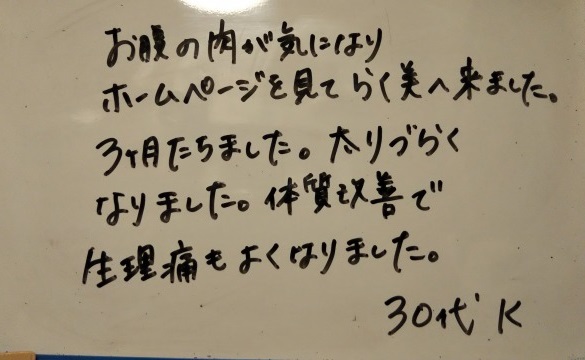 お腹の肉が気になり
ホームページを見てらく美へ来ました。
3ヶ月たちました。太りづらく
なりました。体質改善で
生理痛もよくなりました。
30代 K